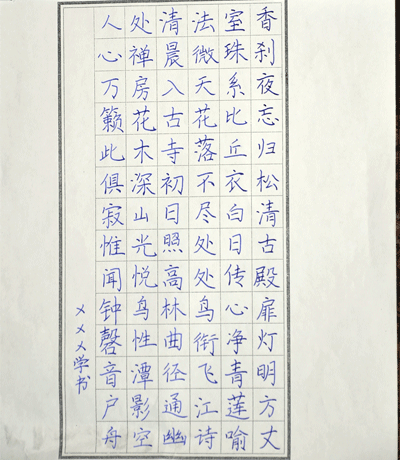 香刹夜忘归松清古殿扉灯明方丈
室珠系比丘衣白日传心净青莲喻
法微天花落不尽处处鸟衔飞江诗
清晨入古寺初日照高林曲径通幽
处禅房花木深山光悦鸟性潭影空
人心万籁此俱寂惟闻钟磬音户舟
×××学书